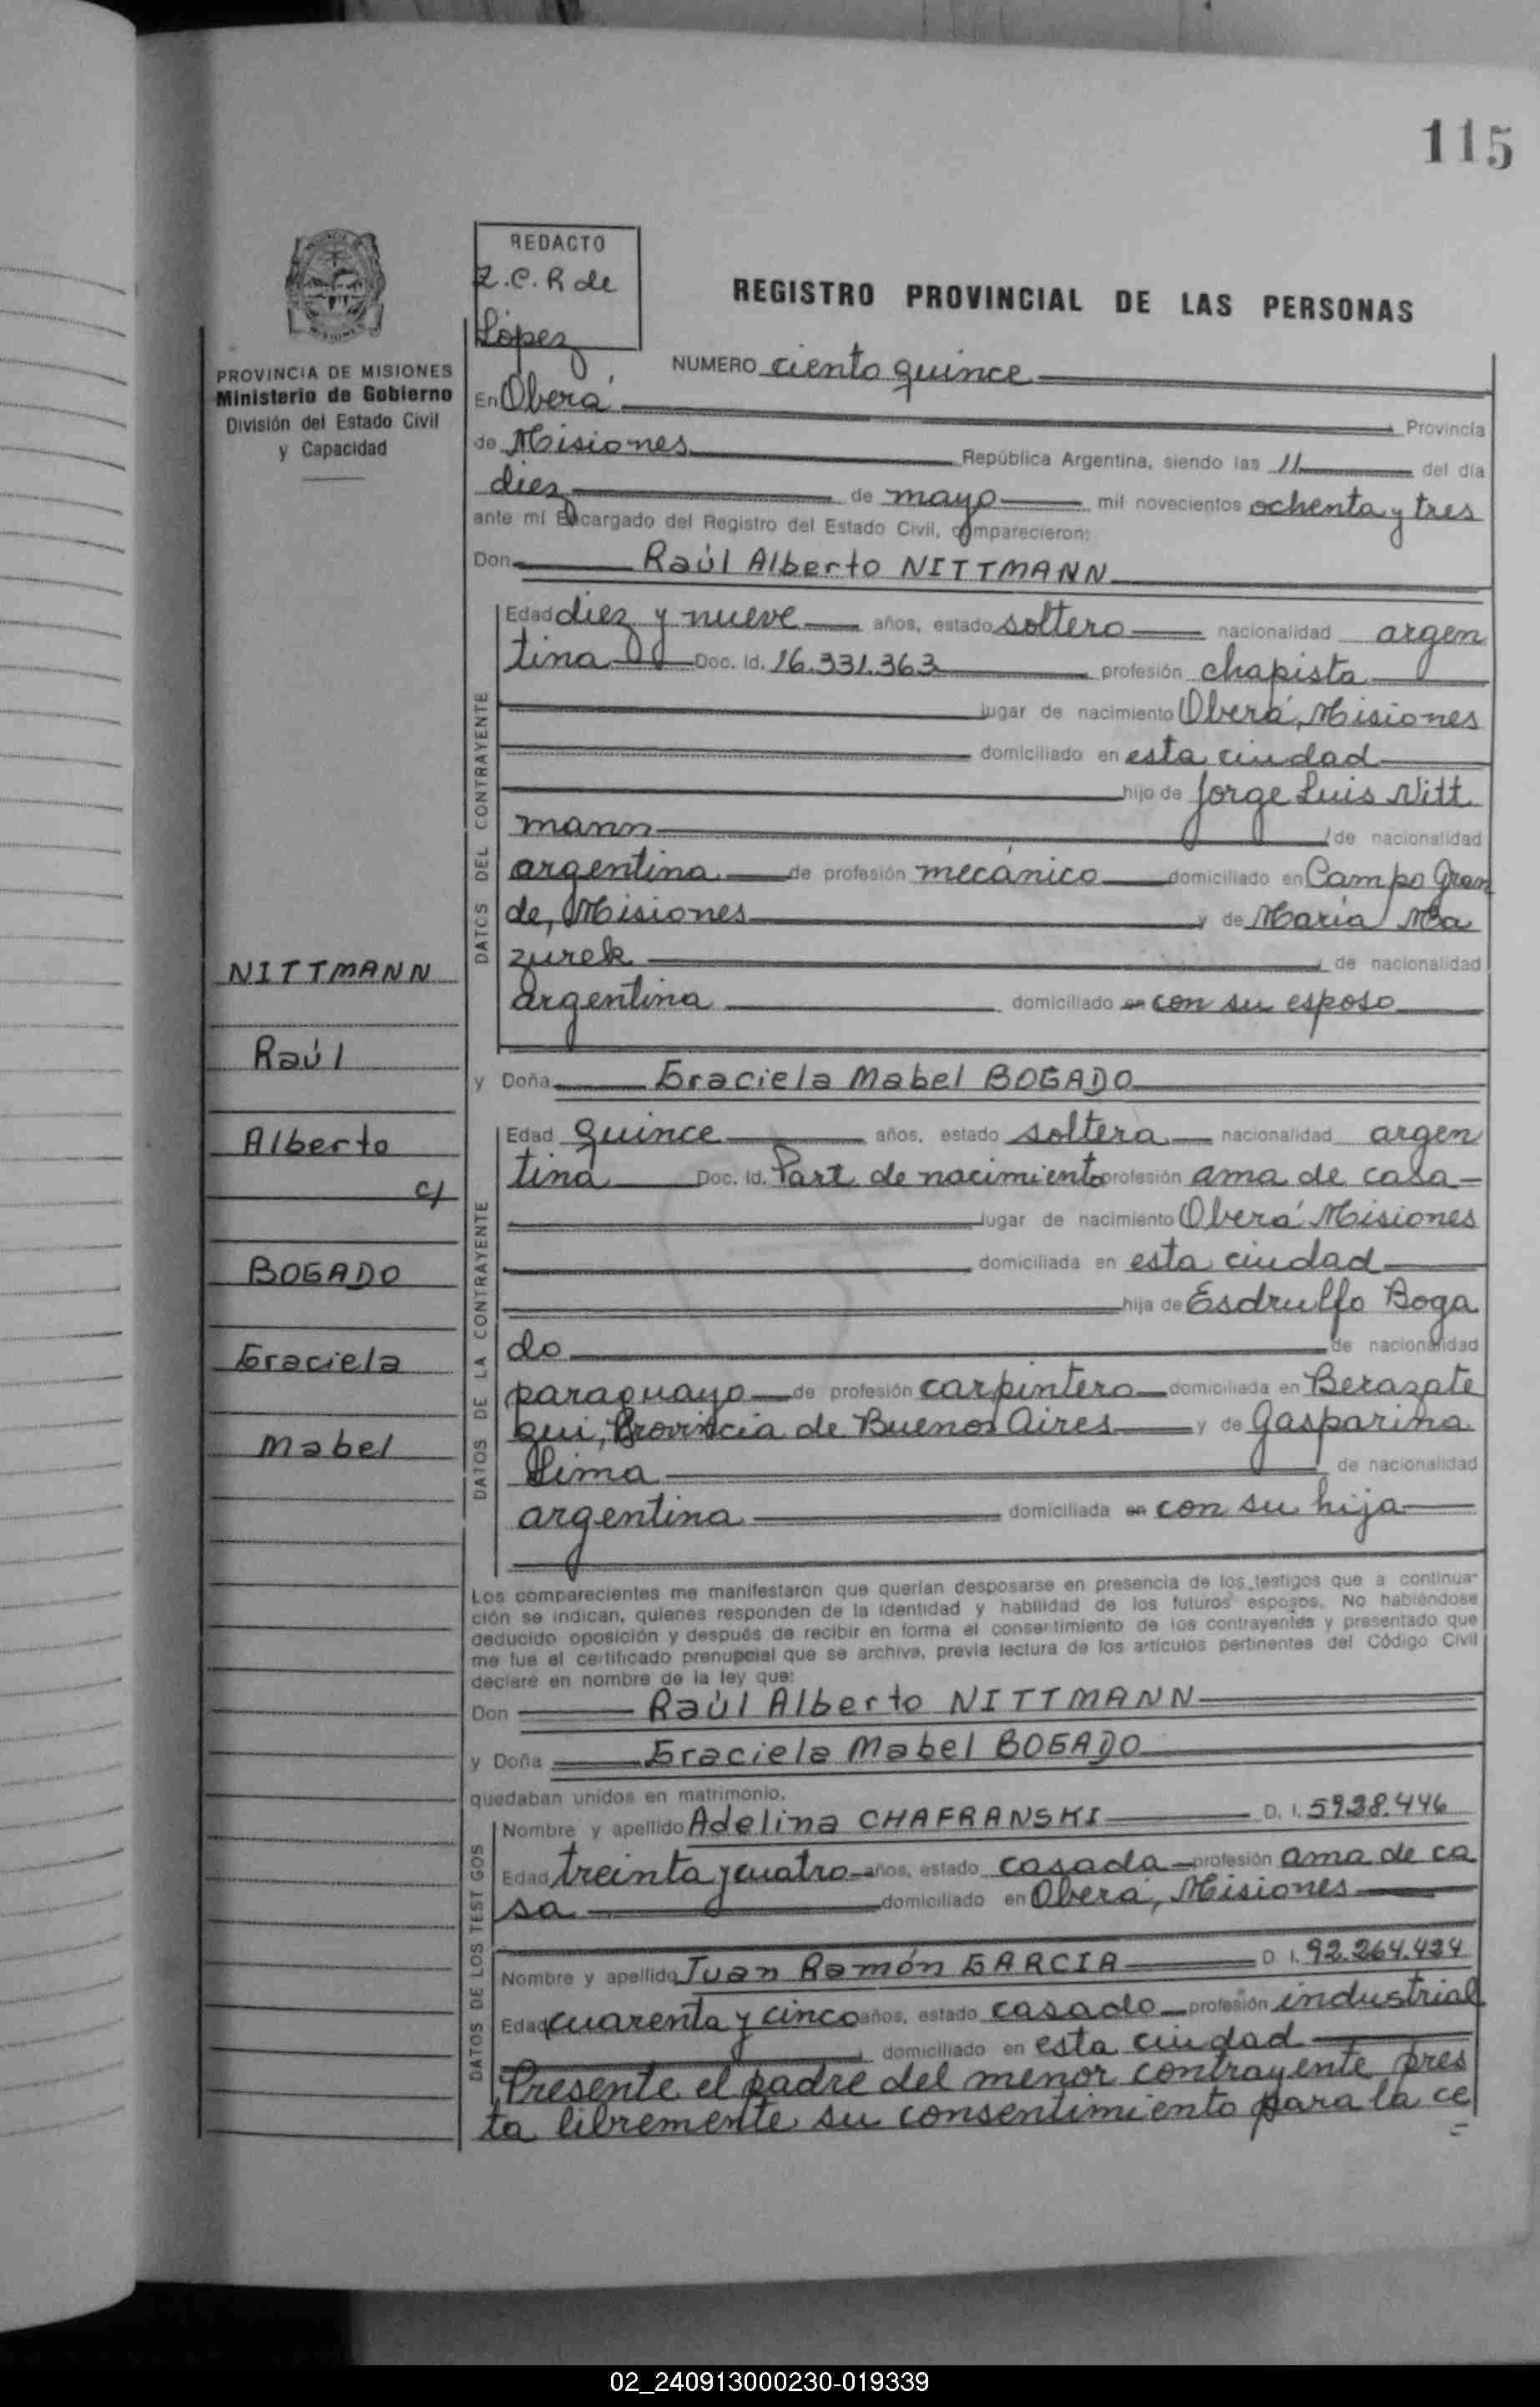 115
REDACTO
Z.C.R de
López
PROVINCIA DE MISIONES
Ministerio de Gobierno
División del Estado Civil
y Capacidad
REGISTRO PROVINCIAL DE LAS PERSONAS
NUMERO ciento quince
En Oberá Provincia
de Misiones República Argentina, siendo las 11 del día
diez de mayo mil novecientos ochenta y tres
ante mí Encargado del Registro del Estado Civil, comparecieron:
Don Raúl Alberto NITTMANN
DATOS DEL CONTRAYENTE
Edad diez y nueve años, estado soltero nacionalidad argen
tina Doc. Id. 16.331.363 profesión chapista
lugar de nacimiento Oberá, Misiones
domiciliado en esta ciudad
hijo de Jorge Luis Nitt
mann de nacionalidad
argentina de profesión mecánico domiciliado en Campo Gran
de, Misiones y de María Ma
zurek de nacionalidad
argentina domiciliado en con su esposo
y Doña Graciela Mabel BOGADO
DATOS DE LA CONTRAYENTE
Edad quince años, estado soltera nacionalidad argen
tina Doc. Id. Part. de nacimiento profesión ama de casa
lugar de nacimiento Oberá Misiones
domiciliada en esta ciudad
hija de Esdrulfo Boga
do de nacionalidad
paraguayo de profesión carpintero domiciliada en Berazate
gui, Provincia de Buenos Aires y de Gasparina
Lima de nacionalidad
argentina domiciliada en con su hija
NITTMANN
Raúl
Alberto
c/
BOGADO
Graciela
Mabel
Los comparecientes me manifestaron que querían desposarse en presencia de los testigos que a continua-
ción se indican, quienes responden de la identidad y habilidad de los futuros esposos. No habiéndose
deducido oposición y después de recibir en forma el consentimiento de los contrayentes y presentado que
me fue el certificado prenupcial que se archiva, previa lectura de los artículos pertinentes del Código Civil
declaré en nombre de la ley que:
Don Raúl Alberto NITTMANN
y Doña Graciela Mabel BOGADO
quedaban unidos en matrimonio.
DATOS DE LOS TESTIGOS
Nombre y apellido Adelina CHAFRANSKI D. I. 5.928.446
Edad treinta y cuatro años, estado casada profesión ama de ca
sa domiciliado en Oberá, Misiones
Nombre y apellido Juan Ramón GARCIA D. I. 92.264.424
Edad cuarenta y cinco años, estado casado profesión industrial
domiciliado en esta ciudad
Presente el padre del menor contrayente pres
ta libremente su consentimiento para la ce
02_240913000230-019339